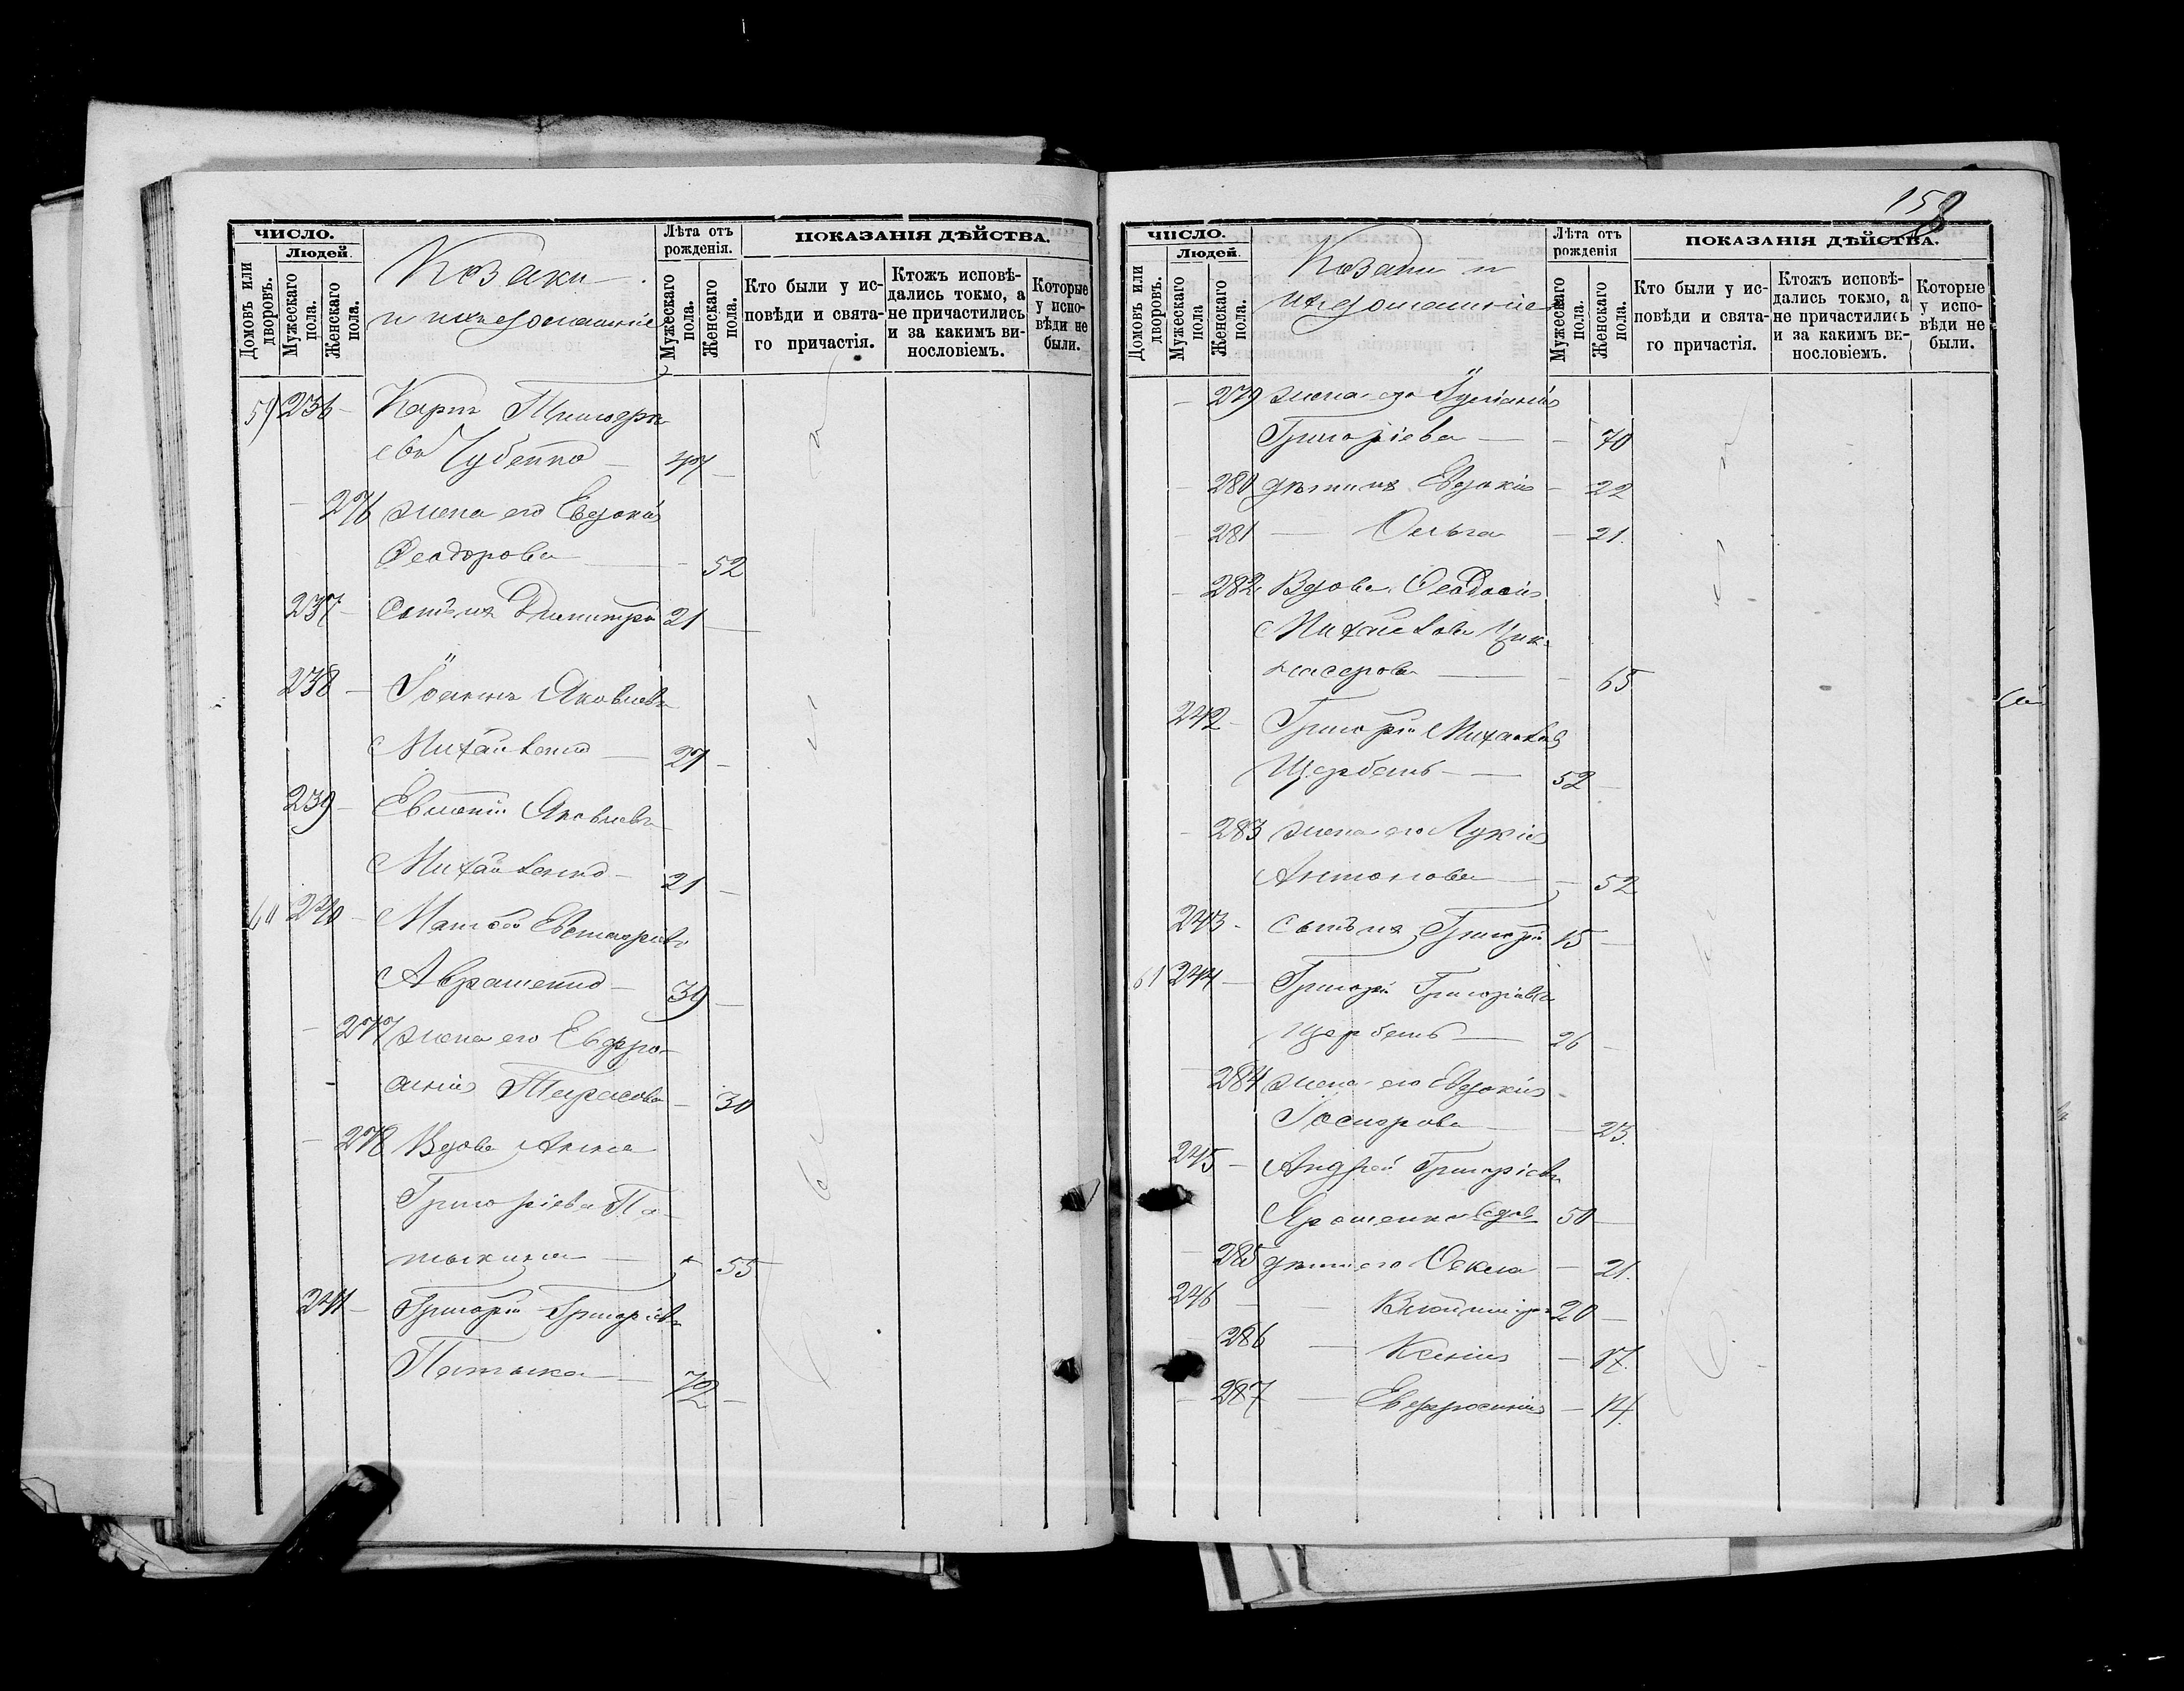 158
ЧИСЛО.
Людей.
Домовъ или дворовъ.
Мужескаго пола.
Женскаго пола.
Козаки
и ихъ домашніе
Лѣта отъ рожденія.
Мужескаго пола.
Женскаго пола.
ПОКАЗАНІЯ ДѢЙСТВА.
Кто были у ис-
повѣди и свята-
го причастія.
Ктожъ исповѣ-
дались токмо, а
не причастились
и за какимъ ви-
нословіемъ.
Которые
у испо-
вѣди не
были.
59 236 – Карпъ
евъ Чубенко – 47 –
– 276 жена его Евдокія
Феодорова – – 52
237 – сынъ их Димитрій 21 –
238 – Іоаннъ Яковлевъ
Михайленко – 27 –
239 – Яковлевъ
Михайленко – 21 –
60 240 – Матѳей
Аврашенко – 39 –
– 277 жена его Евфро-
синія Тарасова – 30
– 278 Вдова Анна
Григоріева
– 55
241 – Григорій Григоріевъ
72 –
ЧИСЛО.
Людей.
Домовъ или дворовъ.
Мужескаго пола
Женскаго пола.
Козаки и
ихъ домашніе
Лѣта отъ рожденія
Мужескаго пола.
Женскаго пола.
ПОКАЗАНІЯ ДѢЙСТВА.
Кто были у ис-
повѣди и свята-
го причастія.
Ктожъ исповѣ-
дались токмо, а
не причастились
и за какимъ ви-
нословіемъ.
Которые
у испо-
вѣди не
были.
– 279 жена его Іуліанія
Григоріева – – 70
– 280 дѣти ихъ Евдокія – 22
– 281 – Ольга – 21.
– 282 Вдова Феодосія
Михайлова
– – 65
242 – Григорій Михайловъ
Щербань – 52 –
– 283 жена его Лукія
Антонова – – 52
243 – сынъ их Григорій 15 –
61 244 – Григорій Григоріевъ
Щербань – 26 –
– 284 жена его Евдокія
– – 23.
245 – Андрей Григоріевъ
Ярошенко вдов 50 –
– 285 дѣти его Ѳекла – 21.
246 – 20 –
– 286 – Ксенія – 17.
– 287 – Евфросинія – 14.